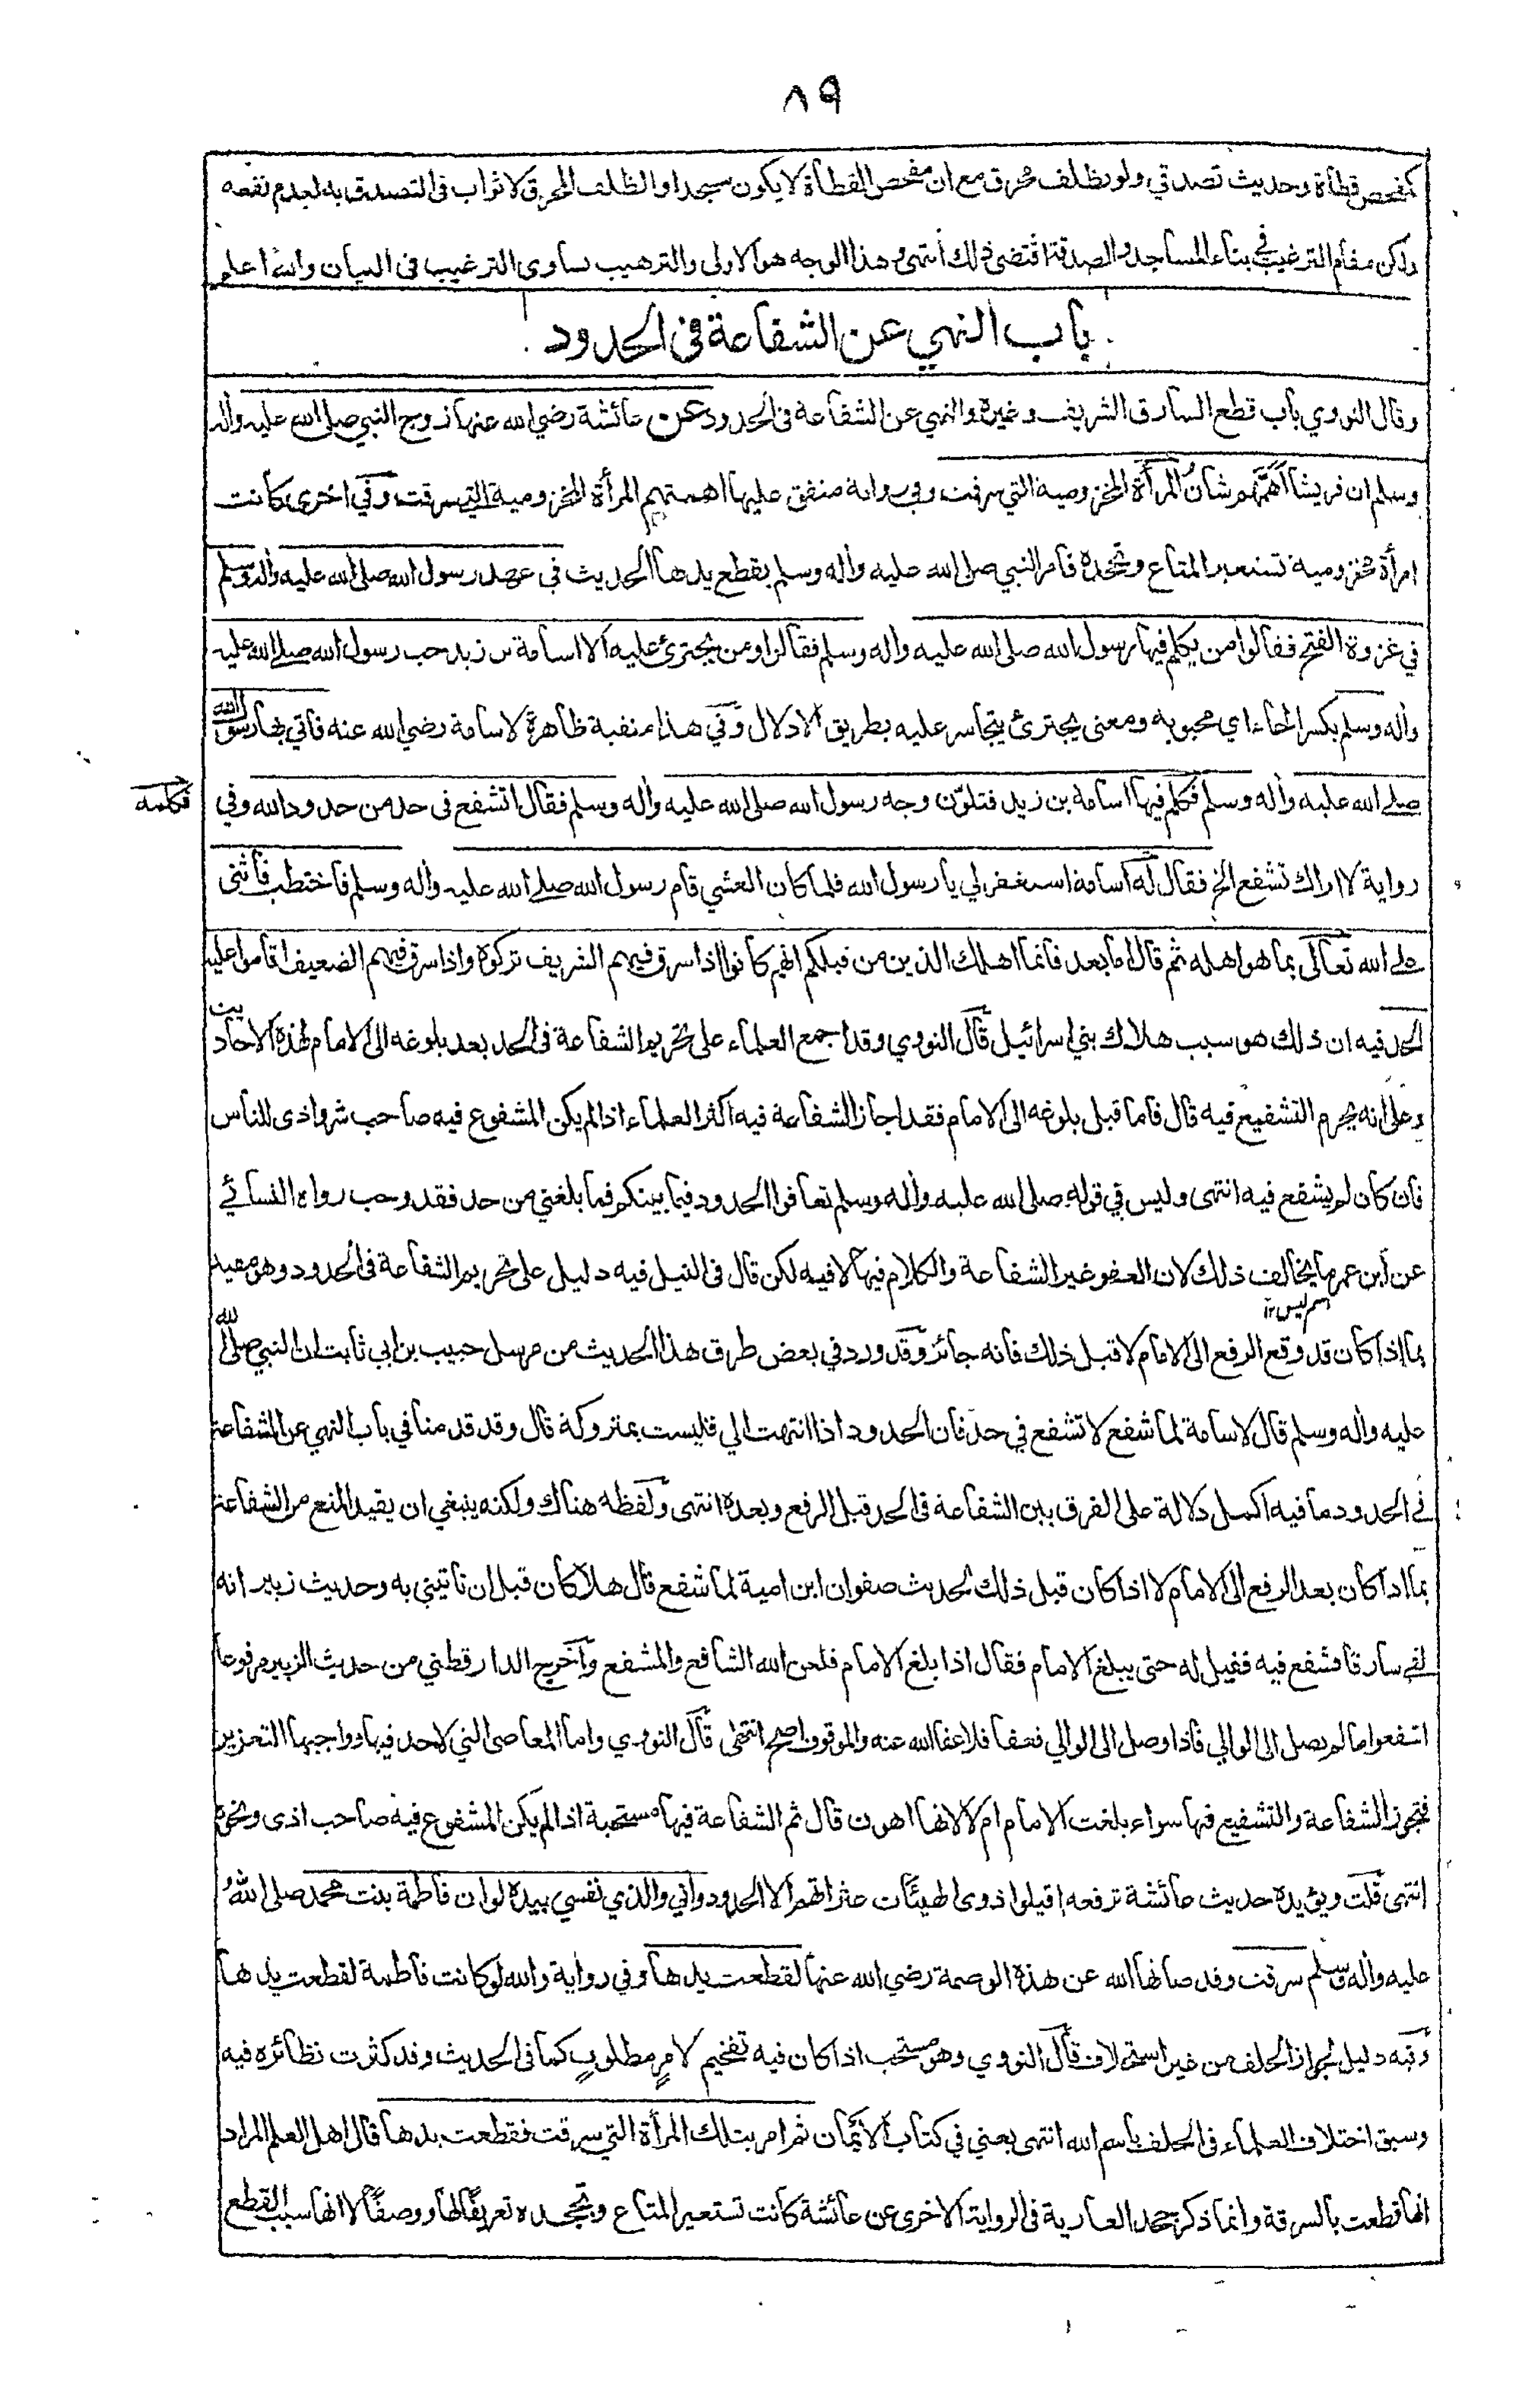 ٨٩
كمفحص قطاة وحديث تصدقي ولو بظلف محرق مع ان مفحص القطاة لا يكون مسجدا والظلف المحرق لا ثواب فى التصدق به لعدم نفعه
ولكن مقام الترغيب في بناء المساجد والصدقة اقتضى ذلك انتهى وهذا الوجه هو الاولى والترهيب يساوى الترغيب فى البيان والله اعلم
باب النهي عن الشفاعة فى الحدود
وقال النووي باب قطع السارق الشريف وغيره والنهي عن الشفاعة فى الحدود عن عائشة رضي الله عنها زوج النبي صلى الله عليه واله
وسلم ان قريشا اهمّهم شأنُ المرأة المخزومية التي سرقت وفي رواية متفق عليها اهمتهم المرأة المخزومية التي سرقت وفي اخرى كانت
امرأة مخزومية تستعير المتاع وتجحده فامر النبي صلى الله عليه واله وسلم بقطع يدها الحديث في عهد رسول الله صلى الله عليه واله وسلم
في غزوة الفتح فقالوا من يكلم فيها رسول الله صلى الله عليه واله وسلم فقالوا ومن يجترئ عليه الا اسامة بن زيد حب رسول الله صلى الله عليه
واله وسلم بكسر الحاء اي محبوبه ومعنى يجترئ يتجاسر عليه بطريق الادلال وفي هذا منقبة ظاهرة لاسامة رضي الله عنه فاتي بها رسول الله
صلى الله عليه واله وسلم فكلم فيها اسامة بن زيد فتلوّن وجه رسول الله صلى الله عليه واله وسلم فقال اتشفع فى حد من حدود الله وفي
فكلمه
رواية لا اراك تشفع الخ فقال له اسامة استغفر لي يا رسول الله فلما كان العشي قام رسول الله صلى الله عليه واله وسلم فاختطب فأثنى
على الله تعالى بما هو اهله ثم قال اما بعد فانما اهلك الذين من قبلكم انهم كانوا اذا سرق فيهم الشريف تركوه واذا سرق فيهم الضعيف اقاموا عليه
الحد فيه ان ذلك هو سبب هلاك بني اسرائيل قال النووي وقد اجمع العلماء على تحريم الشفاعة فى الحد بعد بلوغه الى الامام لهذه الاحاديث
وعلى انه يحرم التشفيع فيه قال فاما قبل بلوغه الى الامام فقد اجاز الشفاعة فيه اكثر العلماء اذا لم يكن المشفوع فيه صاحب شر واذى للناس
فان كان لم يشفع فيه انتهى وليس في قوله صلى الله عليه واله وسلم تعافوا الحدود فيما بينكم فما بلغني من حد فقد وجب رواه النسائي
عن ابن عمر ما يخالف ذلك لان العفو غير الشفاعة والكلام فيها لا فيه لكن قال فى النيل فيه دليل على تحريم الشفاعة فى الحدود وهو مقيد
اسم ليس ١٢
بما اذا كان قد وقع الرفع الى الامام لا قبل ذلك فانه جائز وقد ورد في بعض طرق هذا الحديث من مرسل حبيب بن ابي ثابت ان النبي صلى الله
عليه واله وسلم قال لاسامة لما شفع لا تشفع في حد فان الحدود اذا انتهت الي فليست بمتروكة قال وقد قدمنا في باب النهي عن الشفاعة
في الحدود ما فيه اكمل دلالة على الفرق بين الشفاعة فى الحد قبل الرفع وبعده انتهى ولفظه هناك ولكنه ينبغي ان يقيد المنع من الشفاعة
بما اذا كان بعد الرفع الى الامام لا اذا كان قبل ذلك لحديث صفوان ابن امية لما شفع قال هلا كان قبل ان تاتيني به وحديث زبير انه
لقي سارقا فشفع فيه فقيل له حتى يبلغ الامام فقال اذا بلغ الامام فلعن الله الشافع والمشفع واخرج الدارقطني من حديث الزبير مرفوعا
اشفعوا ما لم يصل الى الوالي فاذا وصل الى الوالي فعفا فلا عفا الله عنه والموقوف اصح انتهى قال النووي واما المعاصى التي لا حد فيها وواجبها التعزير
فتجوز الشفاعة والتشفيع فيها سواء بلغت الامام ام لا لانها اهون قال ثم الشفاعة فيها مستحبة اذا لم يكن المشفوع فيه صاحب اذى ونحوه
انتهى قلت ويؤيده حديث عائشة ترفعه اقيلوا ذوى الهيئات عثراتهم الا الحدود واني والذي نفسي بيده لو ان فاطمة بنت محمد صلى اللهُ
عليه واله وسلم سرقت وقد صانها الله عن هذه الوصمة رضي الله عنها لقطعت يدها وفي رواية والله لو كانت فاطمة لقطعت يدها
وفيه دليل لجواز الحلف من غير استحلاف قال النووي وهو مستحب اذا كان فيه تفخيم لامرٍ مطلوبٍ كما فى الحديث وقد كثرت نظائره فيه
وسبق اختلاف العلماء فى الحلف باسم الله انتهى يعني في كتاب الأيمان ثم امر بتلك المرأة التي سرقت فقطعت يدها قال اهل العلم المراد
انها قطعت بالسرقة وانما ذكر جحد العارية فى الرواية الاخرى عن عائشة كانت تستعير المتاع وتجحده تعريفًا لها ووصفًا لا انها سبب القطع